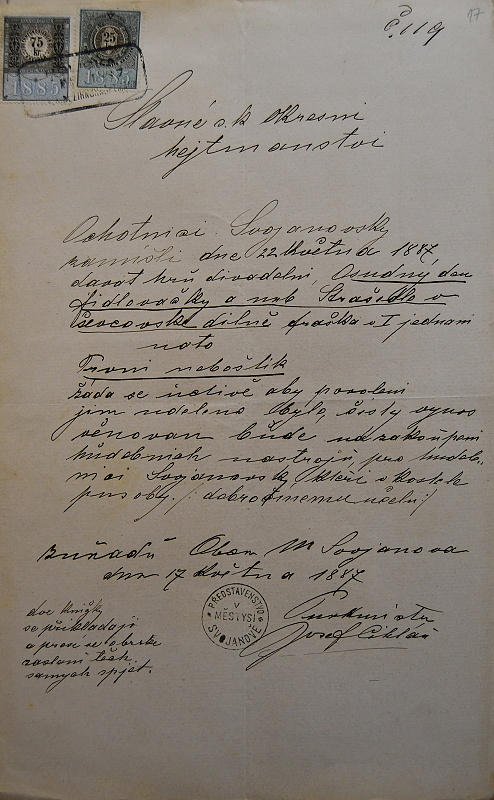 17
č. 119
75
kr.
25
kr.
1885
1885
Slavné c.k. okresní
hejtmanství
Ochotnici Svojanovsky
zamíšli dne 22 Května 1887,
davat hru divadelni, Osudný den
fidlovačky a neb Strašidlo v
ševcovske dilně fraška v I jednani
nato
Prvni neboštik
žada se uctivě aby povoleni
jim uděleno bylo, čisty vynos
věnovan bude na zakoupeni
hudebnich nastrojů pro hudeb„
nici Svojanovsky, kteři v kostele
pusoby. /: dobročinemu učelu :/
Obce M Svojanova
dne 17 Května 1887
PŘEDSTAVENSTVO
V
MĚSTYSI
SVOJANOVĚ
Purkmistr
Josef
dve knižky
se přikladaji
a prosi se
zaslani těch
samych spjet.